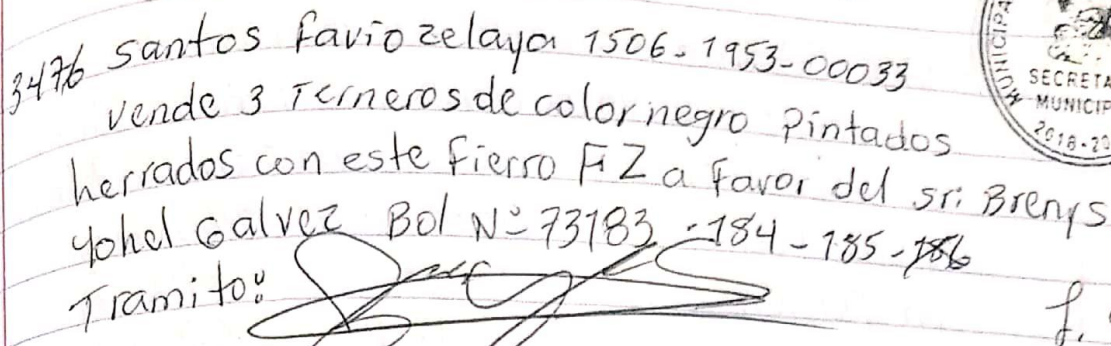 3476 Santos Favio Zelaya 1506-1953-00033
vende 3 Terneros de color negro Pintados
herrados con este Fierro FZ a Favor del sr: Brenys
Yohel Galvez Bol Nº 73183 -184-185-186
Tramito:
f.
MUNICIPA
SECRETA
MUNICIP
2018-20